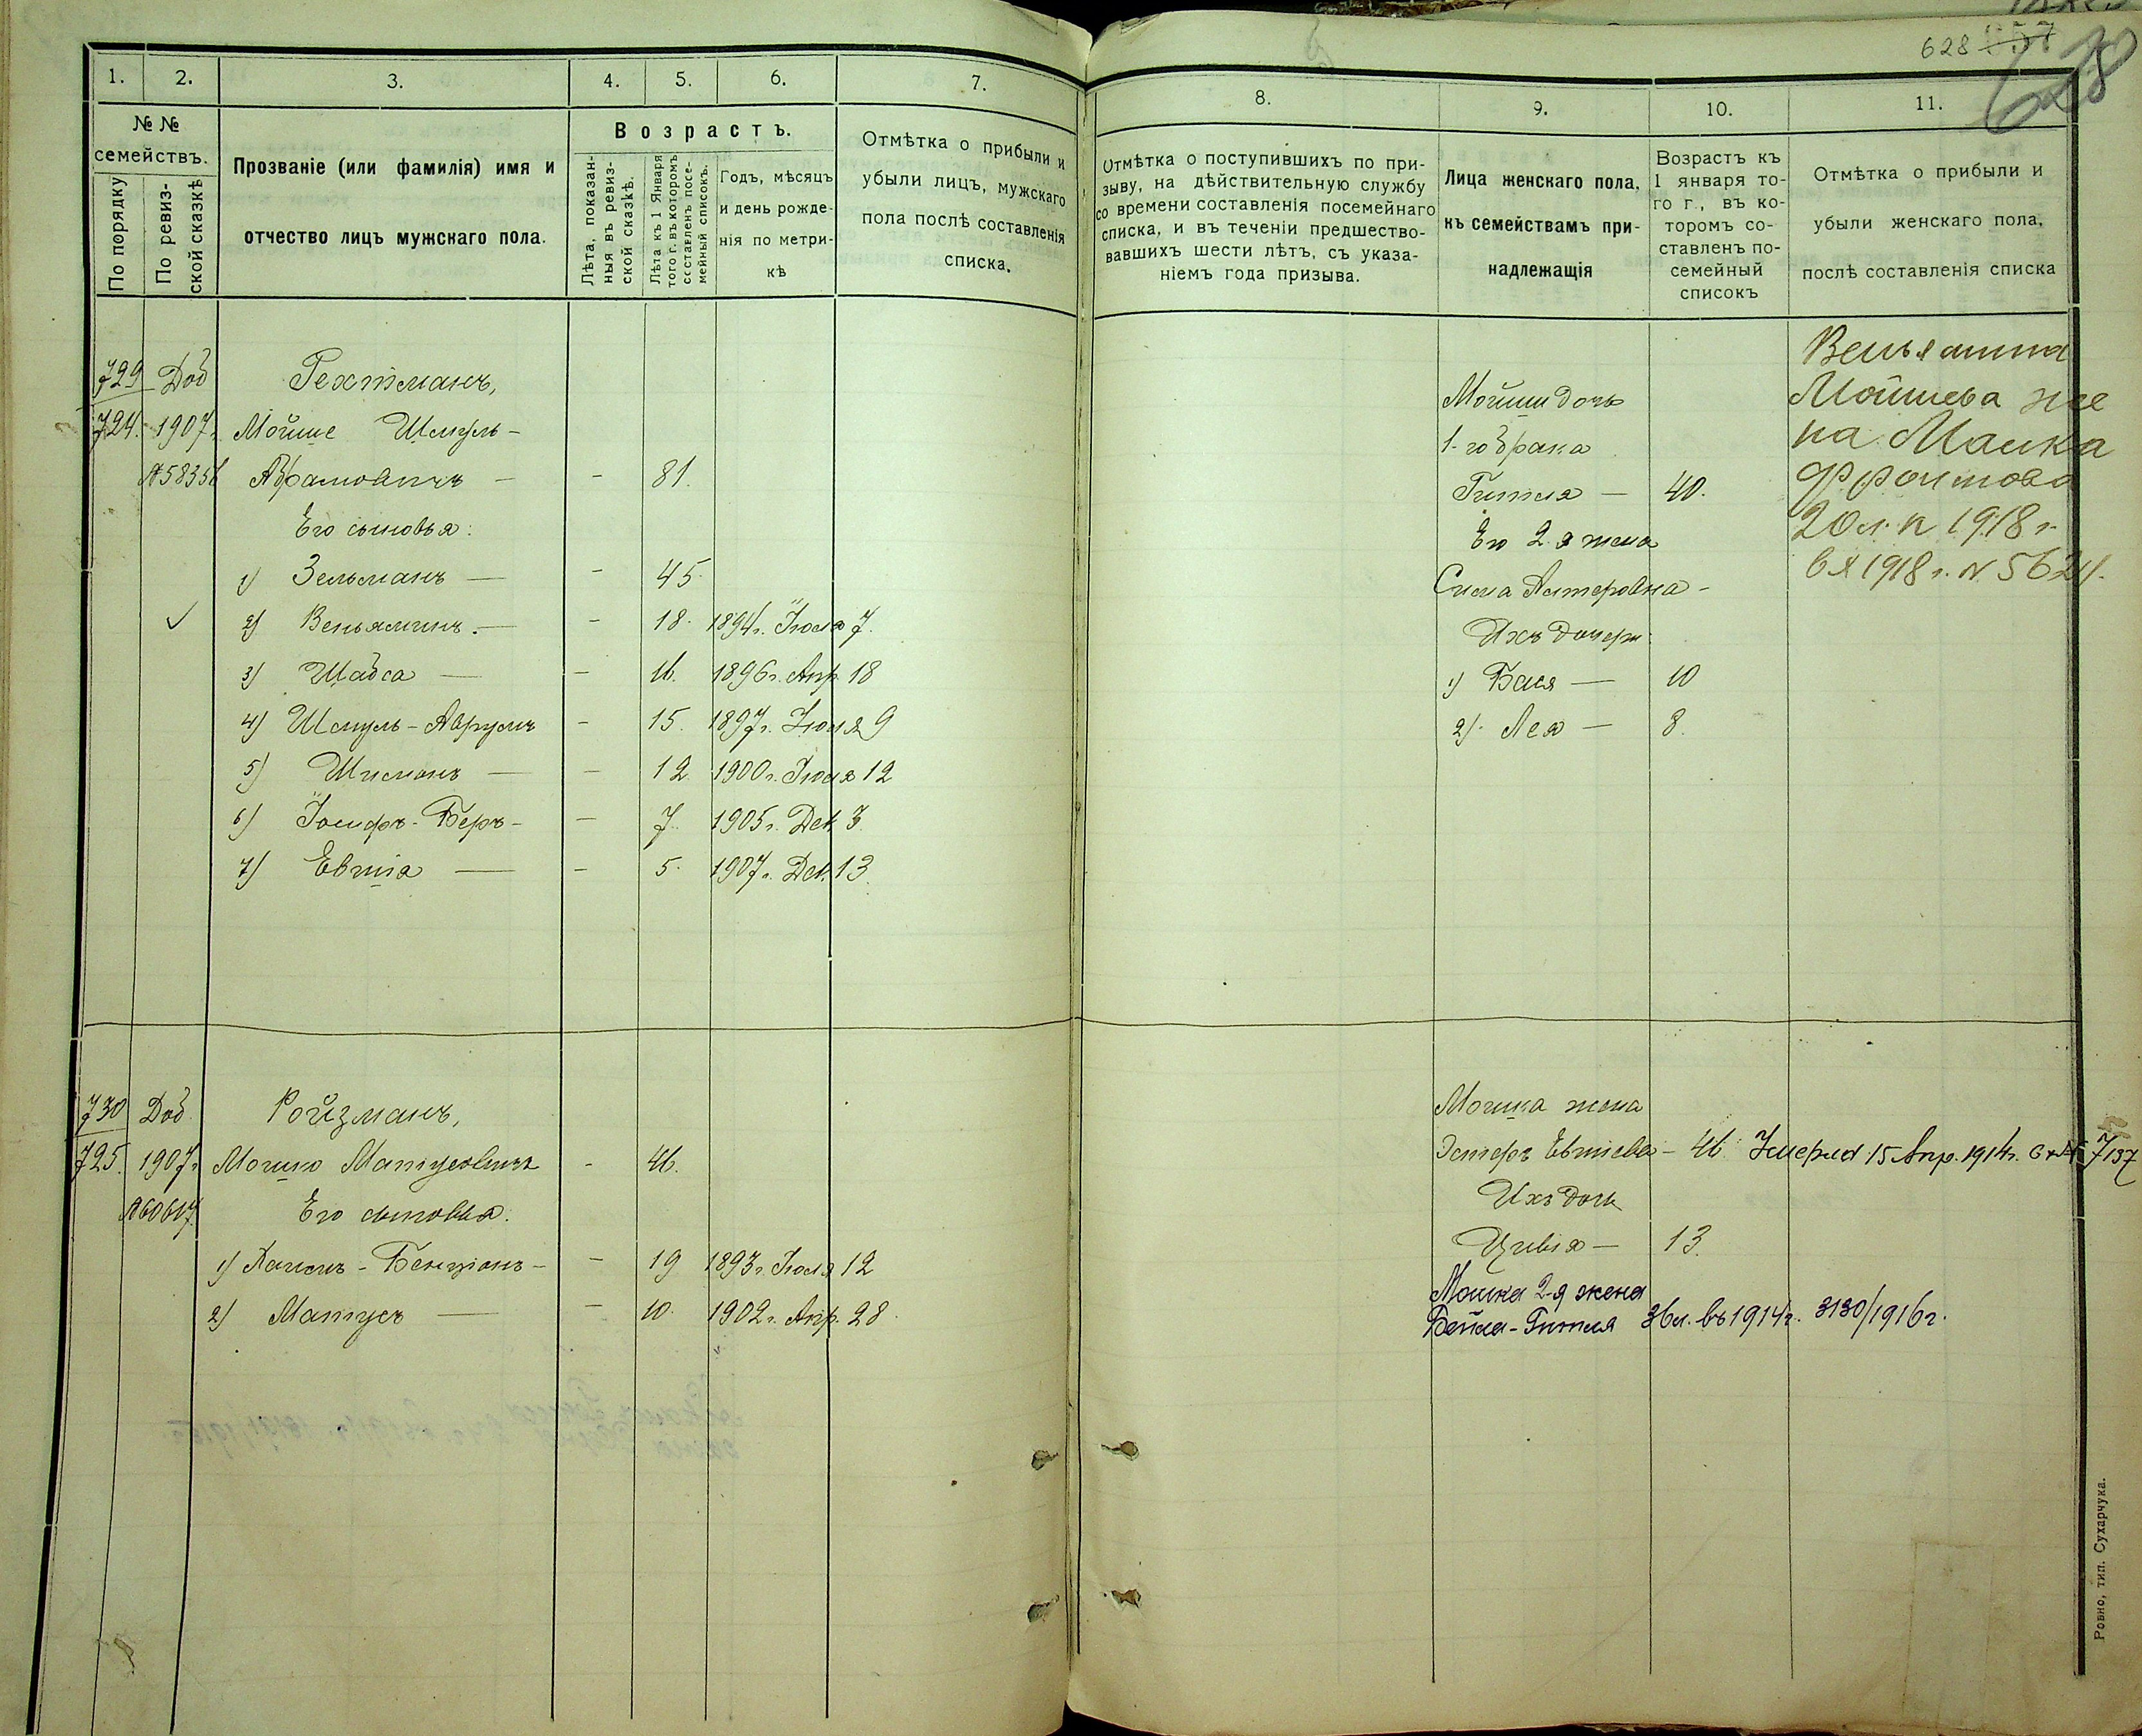 628
628
1. 2. 3. 4. 5. 6. 7.
№ №
семействъ.
По порядку
По ревиз-
ской сказкѣ
Прозваніе (или фамилія) имя и
отчество лицъ мужскаго пола.
Возрастъ.
Лѣта, показан-
ныя въ ревиз-
ской сказкѣ.
Лѣта къ 1 Января
того г. въ которомъ
составленъ посе-
мейный списокъ.
Годъ, мѣсяцъ
и день рожде-
нія по метри-
кѣ
Отмѣтка о прибыли и
убыли лицъ, мужскаго
пола послѣ составленія
списка.
729 Доб Рехтманъ,
724. 1907 г. Мойше Шмуль-
№ 5835 Абрамовичъ — - 81.
Его сыновья:
1) Зельманъ — - 45.
✓ 2) Веньяминъ. — - 18. 1894 г. Іюля 7.
3) Шабса — - 16. 1896 г. Апр. 18
4) Шмуль-Аврумъ - 15. 1897 г. 9
5) Шимонъ — - 12 1900 г. Іюля 12
6) Іосифъ-Беръ - — 7. 1905 г. Дек. 3.
7) Евтіа — - 5. 1907 г. Дек. 13.
730 Доб. Ройзманъ,
725. 1907 г. Мошко Матусовичъ - 46.
№ 60617 Его сыновья:
1) Бенціонъ - — 19 1893 г. Іюля 12
2) Матусъ — - 10. 1902 г. Апр. 28.
8. 9. 10. 11.
Отмѣтка о поступившихъ по при-
зыву, на дѣйствительную службу
со времени составленія посемейнаго
списка, и въ теченіи предшество-
вавшихъ шести лѣтъ, съ указа-
ніемъ года призыва.
Лица женскаго пола,
къ семействамъ при-
надлежащія
Возрастъ къ
1 января то-
го г., въ ко-
торомъ со-
ставленъ по-
семейный
списокъ
Отмѣтка о прибыли и
убыли женскаго пола,
послѣ составленія списка
Мойши дочь
1-го брака
Гитля — 40.
Его 2-я жена
Сима Алтеровна -
Ихъ дочери:
1) Бася — 10
2) Лея — 8.
Веньямина
Мойшева же
на Малка
20 л. 1918 г.
1918 г. № 5624.
Мошка жена
Эстеръ Евтіева - 46. Умерла 15 Апр. 1914 г. 7137
Ихъ дочь
Цивія — 13.
Мошка 2-я жена
Бейла-Гитля 36 л. въ 1914 г. 3130/1916 г.
Ровно, тип. Сухарчука.